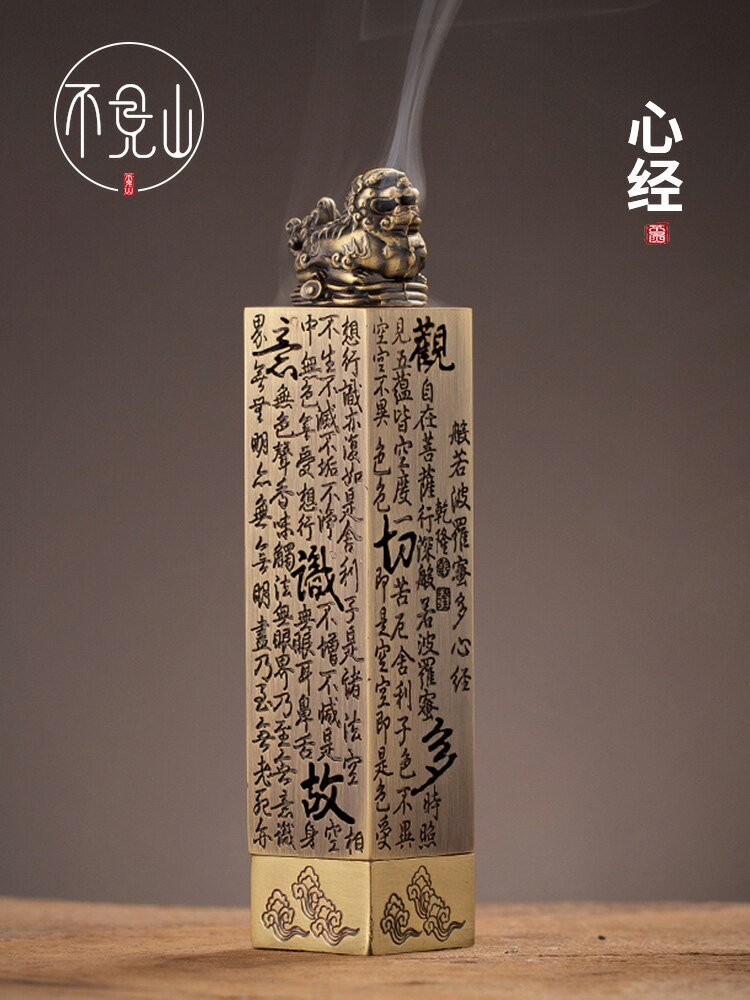 不見山
心经
般若波羅蜜多心經
乾隆
觀自在菩薩行深般若波羅蜜多時照
見五蘊皆空度一切苦厄舍利子色不異
空空不異色色即是空空即是色受
想行識亦復如是舍利子是諸法空相
不生不滅不垢不淨不增不減是故空
中無色無受想行識無眼耳鼻舌身
意無色聲香味觸法無眼界乃至無意識
界無無明亦無無明盡乃至無老死亦